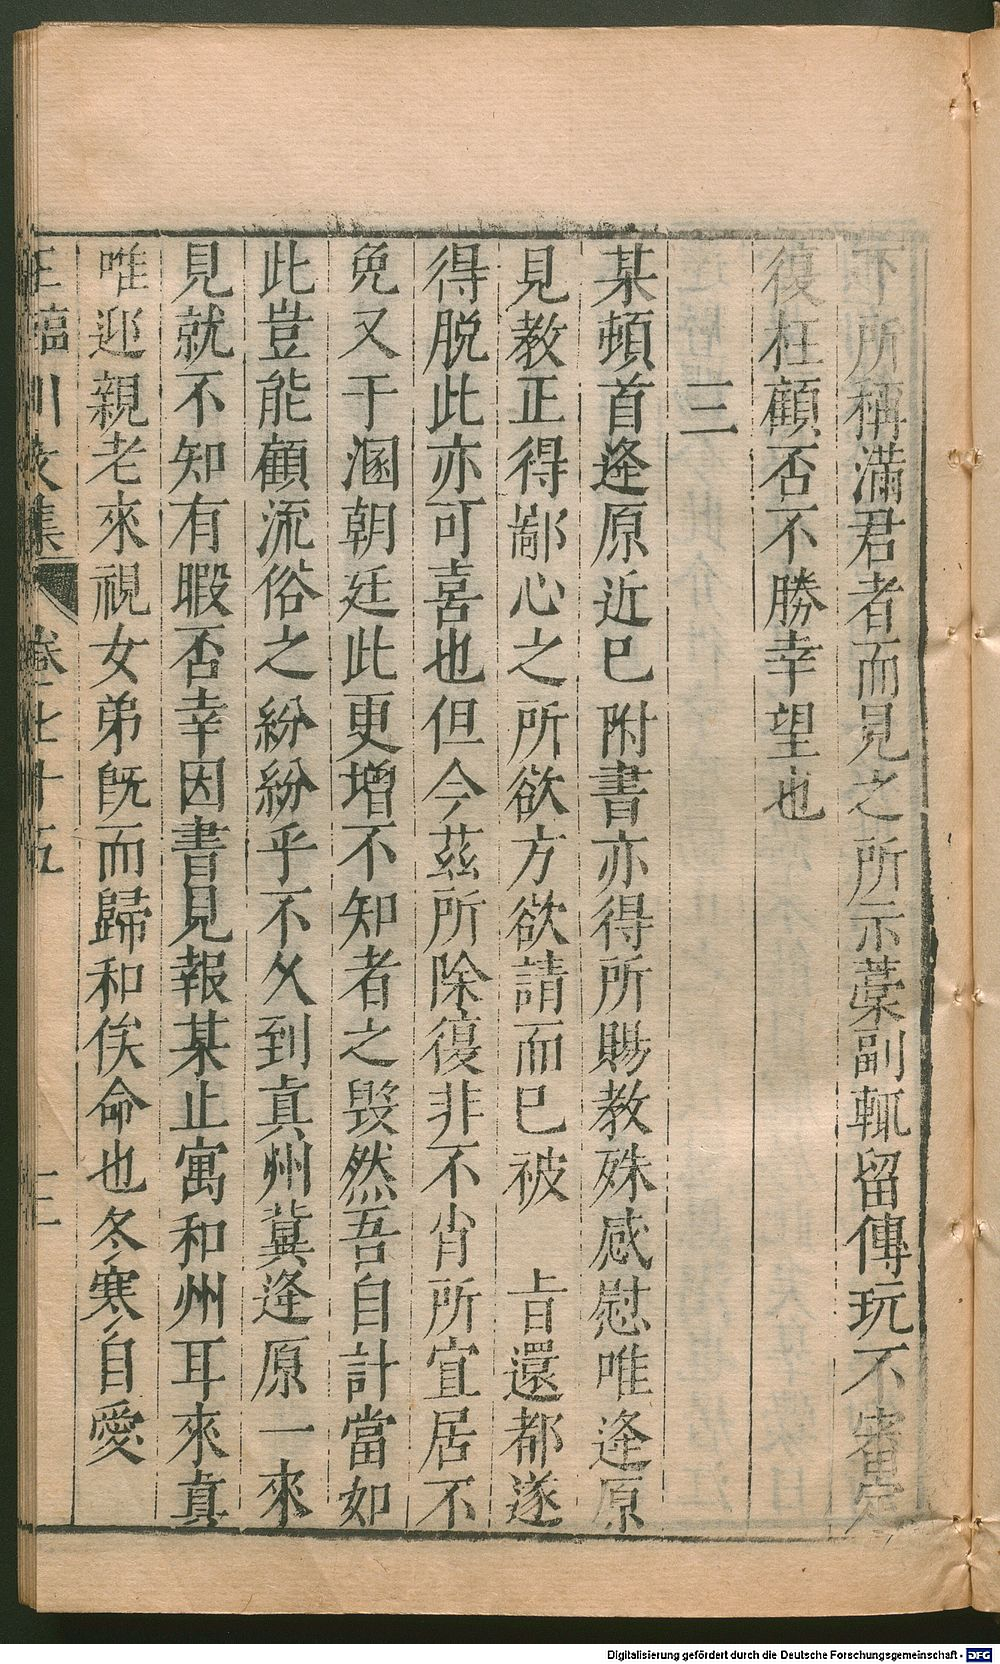 下所稱滿君者而見之所示藁副輒留傳玩不審定
復枉顧否不勝幸望也
三
某頓首逄原近已附書亦得所賜教殊感慰唯逄原
見教正得鄙心之所欲方欲請而已被　旨還都遂
得脱此亦可喜也但今茲所除復非不肖所宜居不
免又于溷朝廷此更增不知者之毁然吾自計當如
此豈能顧流俗之紛紛乎不久到真州冀逄原一來
見就不知有暇否幸因書見報某止寓和州耳來真
唯迎親老來視女弟旣而歸和俟命也冬寒自愛
王臨川文集
卷七十五
三
Digitalisierung gefördert durch die Deutsche Forschungsgemeinschaft - DFG